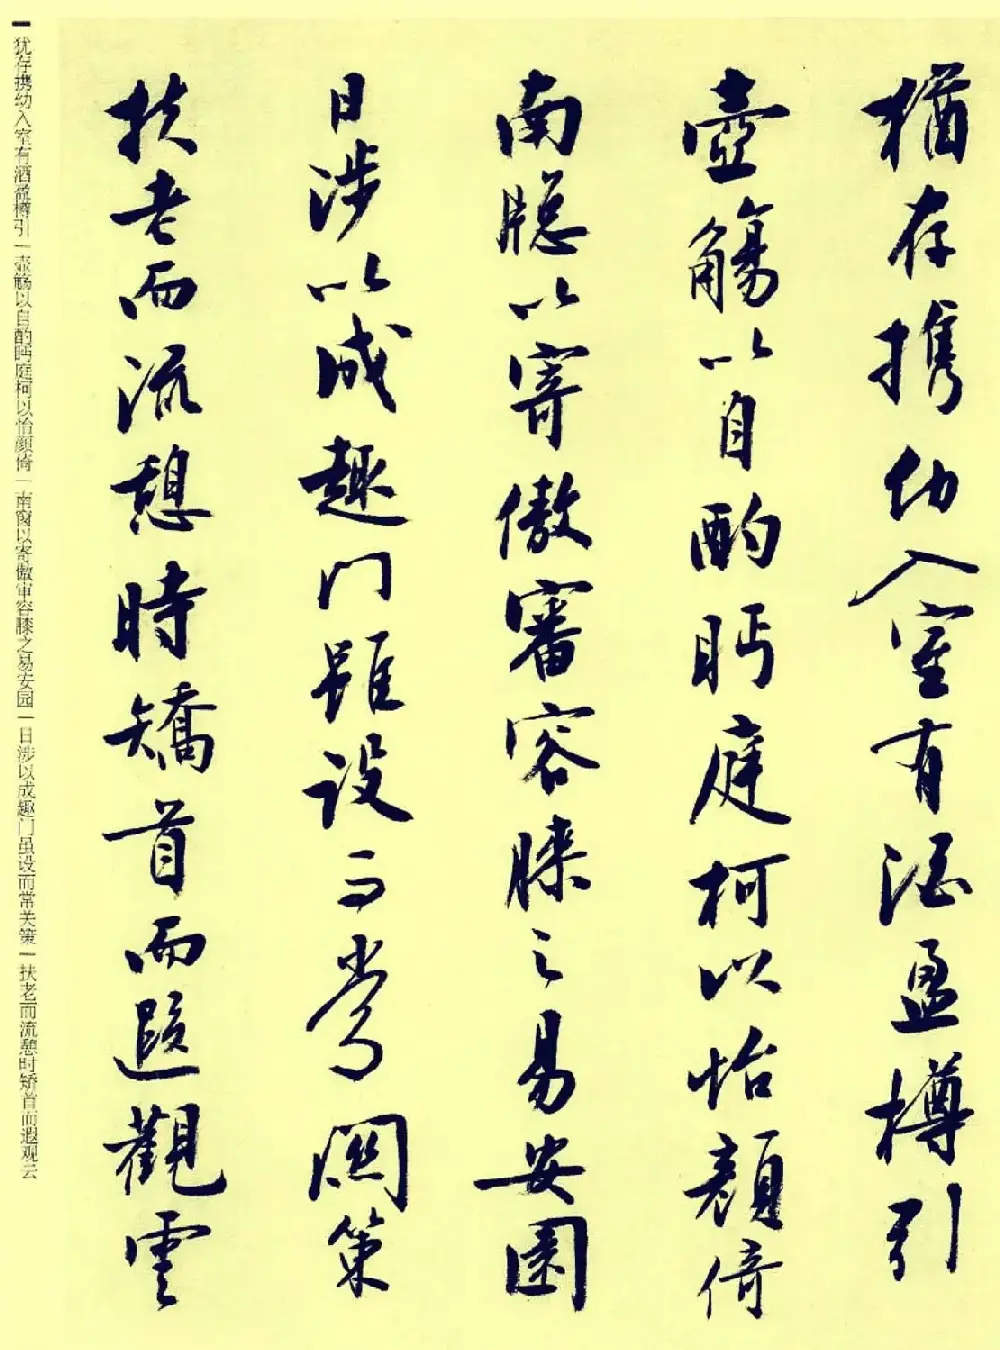 猶存携幼入室有酒盈樽引
壺觴以自酌眄庭柯以怡顔倚
南窓以寄傲審容膝之易安園
日涉以成趣门雖设而常関策
扶老而流憩時矯首而遐觀雲
犹存携幼入室有酒盈樽引|壶觞以自酌眄庭柯以怡颜倚|南窗以寄傲审容膝之易安园|日涉以成趣门虽设而常关策|扶老而流憩时矫首而遐观云